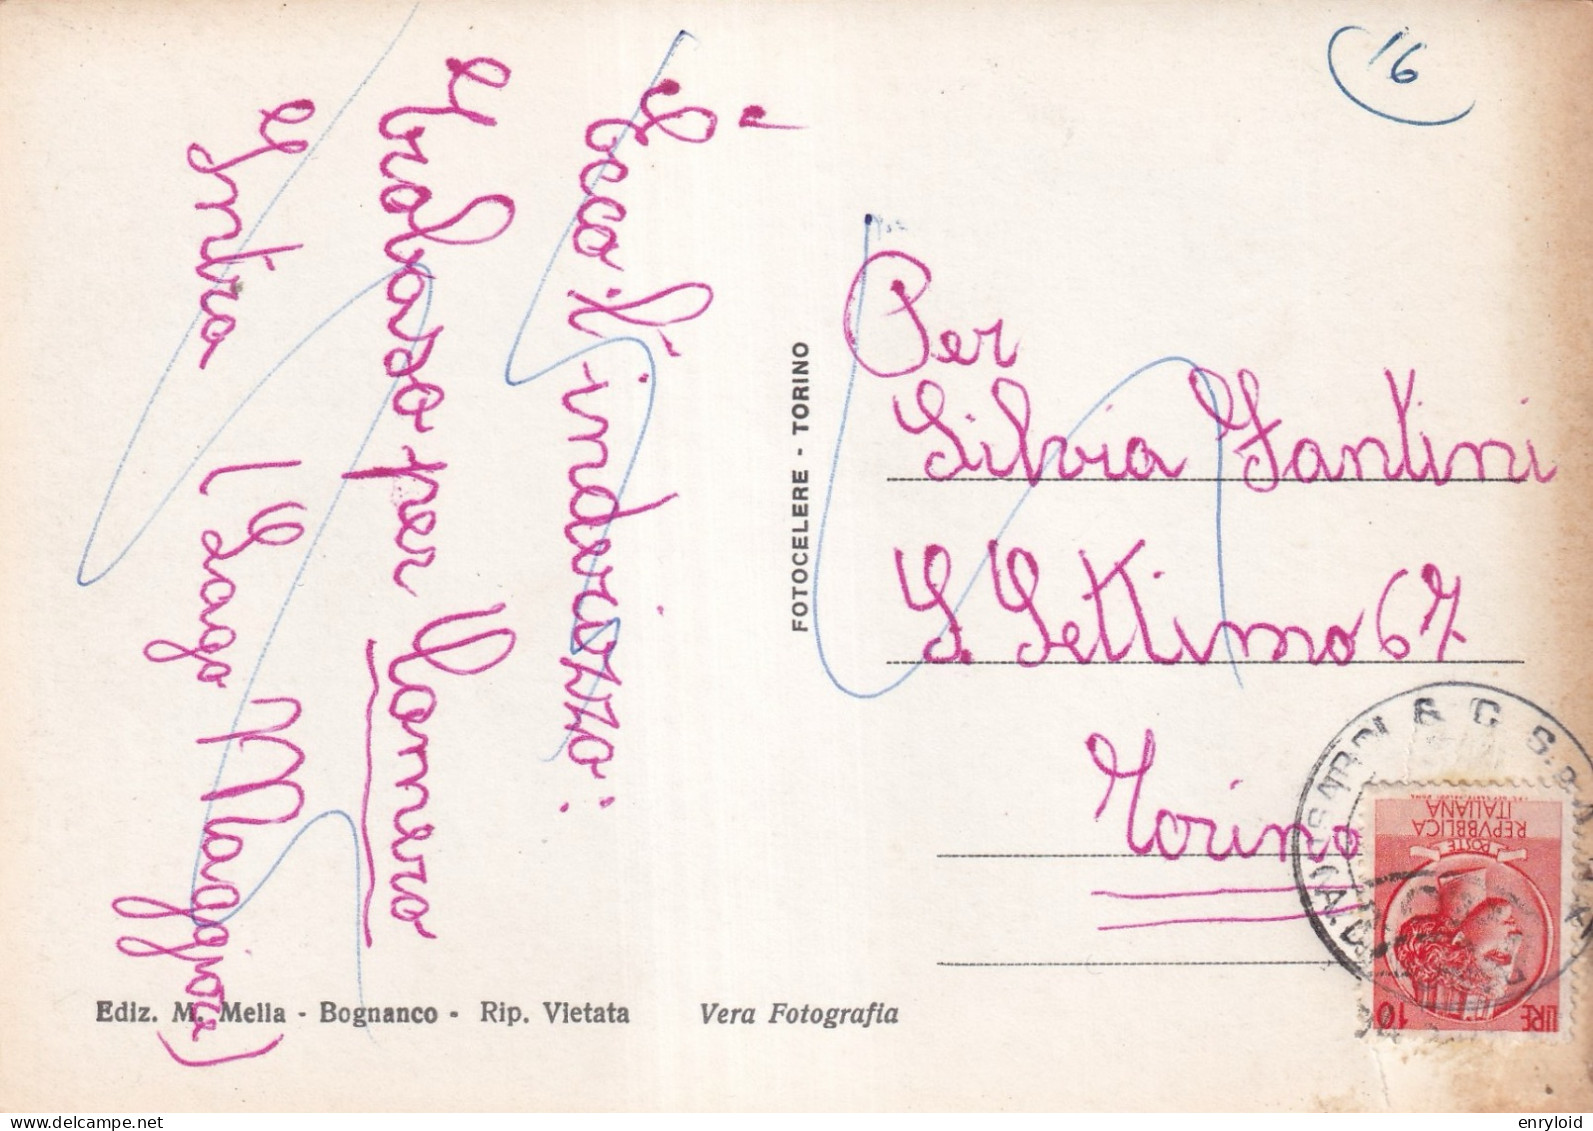 16
Ecco l'indirizzo:
Abrasso per Cannero
Intra (Lago Maggiore)
FOTOCELERE - TORINO
Per
Silvia Fantini
S. Settimo 67
Torino
REPVBBLICA
ITALIANA
POSTE
LIRE 10
Ediz. M. Mella - Bognanco - Rip. Vietata
Vera Fotografia
delcampe.net
enryloid